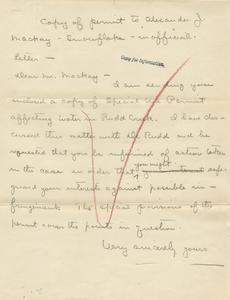 Copy of permit to Alexander J.
Mackay - Snowflake - unofficial.
Letter -
Copy for information.
Dear Mr. Mackay -
I am sending you
enclosed a copy of Special Use Permit
affecting water in Rudd Creek. I have dis-
cussed this matter with Mr Rudd and he
requested that you be informed of action taken
in the case in order that
you might
safe
guard your interests against possible in-
fringement. The special provisions of the
permit cover the points in question.
Very sincerely yours